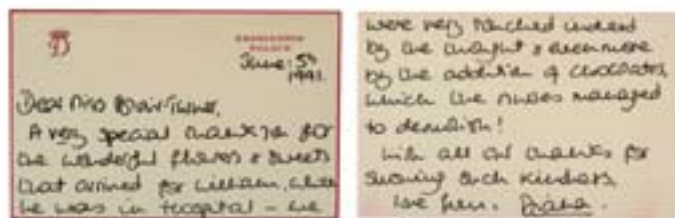 KENSINGTON
PALACE
June: 5th
1991.
Dear Miss
A very special thank you for
the wonderful flowers & sweets
that arrived for William, while
he was in hospital – we
were very touched indeed
by the thought & even more
by the addition of chocolates,
which the nurses managed
to demolish!
With all our thanks for
showing such kindness,
love from, Diana.